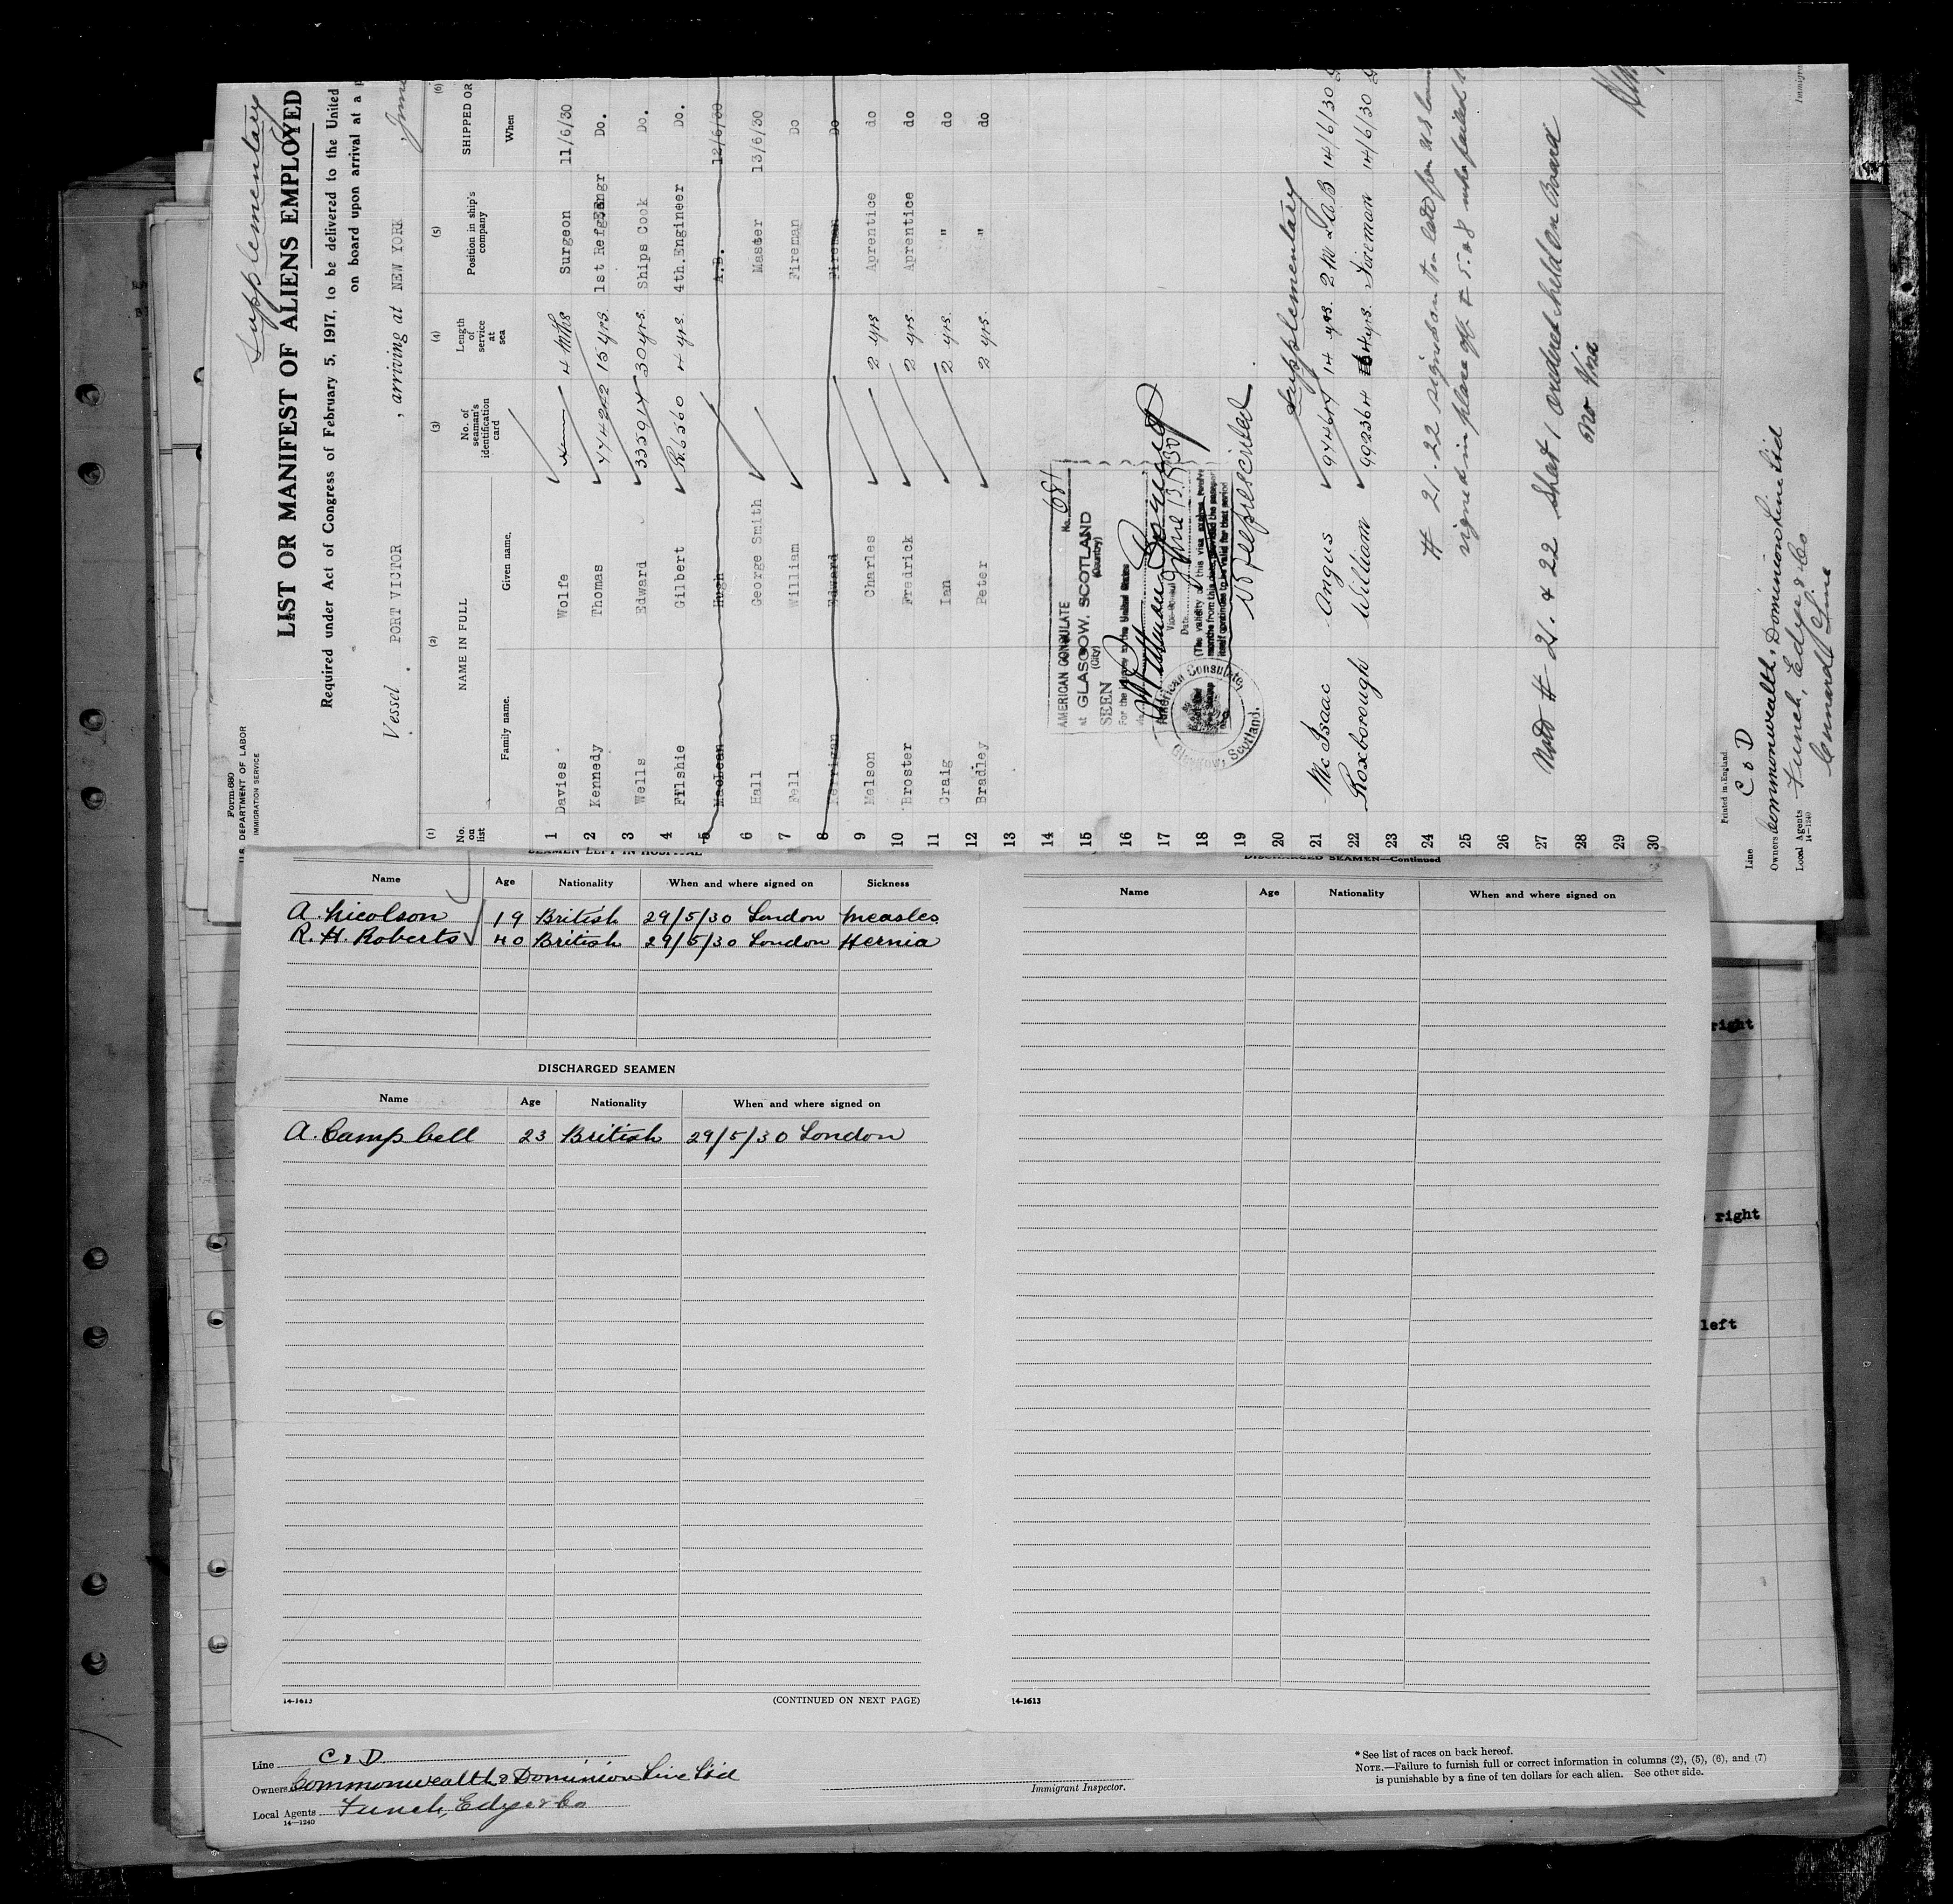 Supplementary
Form 680
U.S. DEPARTMENT OF LABOR
IMMIGRATION SERVICE
LIST OR MANIFEST OF ALIENS EMPLOYED
Required under Act of Congress of February 5, 1917, to be delivered to the United
on board upon arrival at a
Vessel PORT VICTOR , arriving at NEW YORK , June
(1) (2) (3) (4) (5) (6)
No. on list NAME IN FULL No. of seaman's identification card Length of service at sea Position in ship's company SHIPPED OR
Family name. Given name. When
1 Davies Wolfe 4 mths Surgeon 11/6/30
2 Kennedy Thomas 15 yrs. 1st Refg Engr Do.
3 Wells Edward 335914 30 yrs. Ships Cook Do.
4 Filshie Gilbert R.6560 4 yrs. 4th.Engineer Do.
5 MacLean Hugh A.B. 12/6/30
6 Hall George Smith Master 13/6/30
7 Fell William Fireman Do
8 Kerrigan Edward Fireman Do
9 Melson Charles 2 yrs Aprentice do
10 Broster Fredrick 2 yrs. Aprentice do
11 Craig Ian 2 yrs. " do
12 Bradley Peter 2 yrs. " do
13
14
15
16
17
18
19
20
AMERICAN CONSULATE No. 681
at GLASGOW, SCOTLAND
(City) (Country)
SEEN
For the journey to the United States
Vice-Consul
Date June 13. 1930
(The validity of this visa expires twelve
months from this date, provided the passport
itself continues to be valid for that period
American Consulate
Glasgow Scotland.
Supplementary
21 Mc Isaac Angus 974647 14 yrs. 14/6/30
22 Roxborough William 992364 4 yrs. Fireman 14/6/30
23
24
# 21.22 signed on too late for US
25
signed in place of # 5 & 8 who failed
26
27
Note # 21. & 22 Sheet 1 ordered held on Board
28
no Visa
29
30
Printed in England
Line C & D
Owners Commonwealth & Dominion Line Ltd
Local Agents Funch, Edye & Co
14-1240
Cunard Line
SEAMEN LEFT IN HOSPITAL
Name Age Nationality When and where signed on Sickness
A. Nicolson 19 British 29/5/30 London Measles
R. H. Roberts 40 British 29/5/30 London Hernia
DISCHARGED SEAMEN
Name Age Nationality When and where signed on
A. Campbell 23 British 29/5/30 London
14-1613
(CONTINUED ON NEXT PAGE)
DISCHARGED SEAMEN—Continued
Name Age Nationality When and where signed on
14-1613
right
right
left
Line C & D
Owners Commonwealth & Dominion Line Ltd
Local Agents Funch, Edye & Co
14-1240
Immigrant Inspector.
* See list of races on back hereof.
NOTE.—Failure to furnish full or correct information in columns (2), (5), (6), and (7)
is punishable by a fine of ten dollars for each alien. See other side.